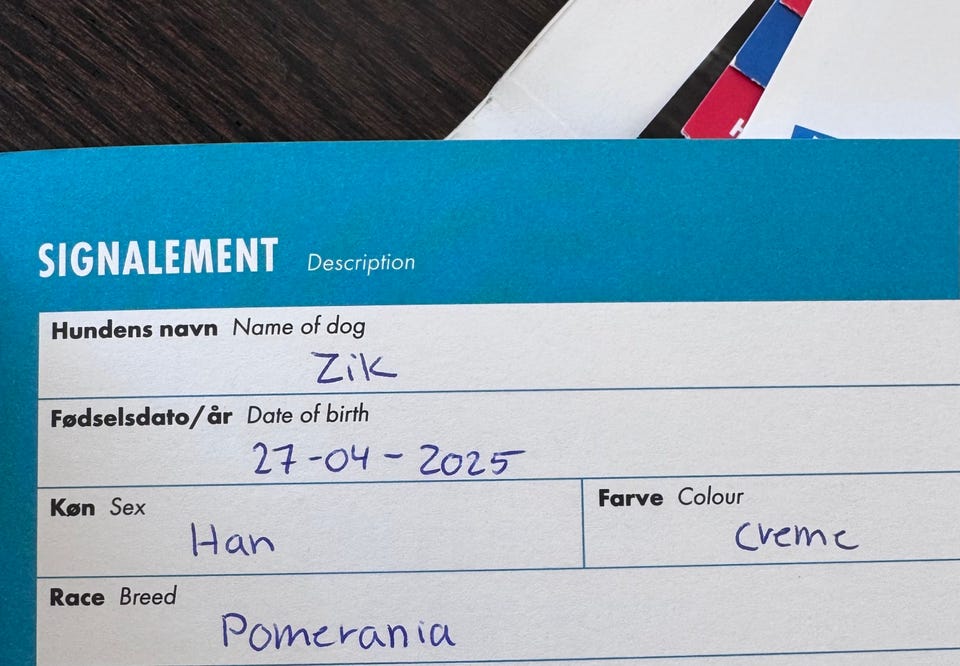 SIGNALEMENT Description
Hundens navn Name of dog
Zik
Fødselsdato/år Date of birth
27-04-2025
Køn Sex
Han
Farve Colour
Creme
Race Breed
Pomerania